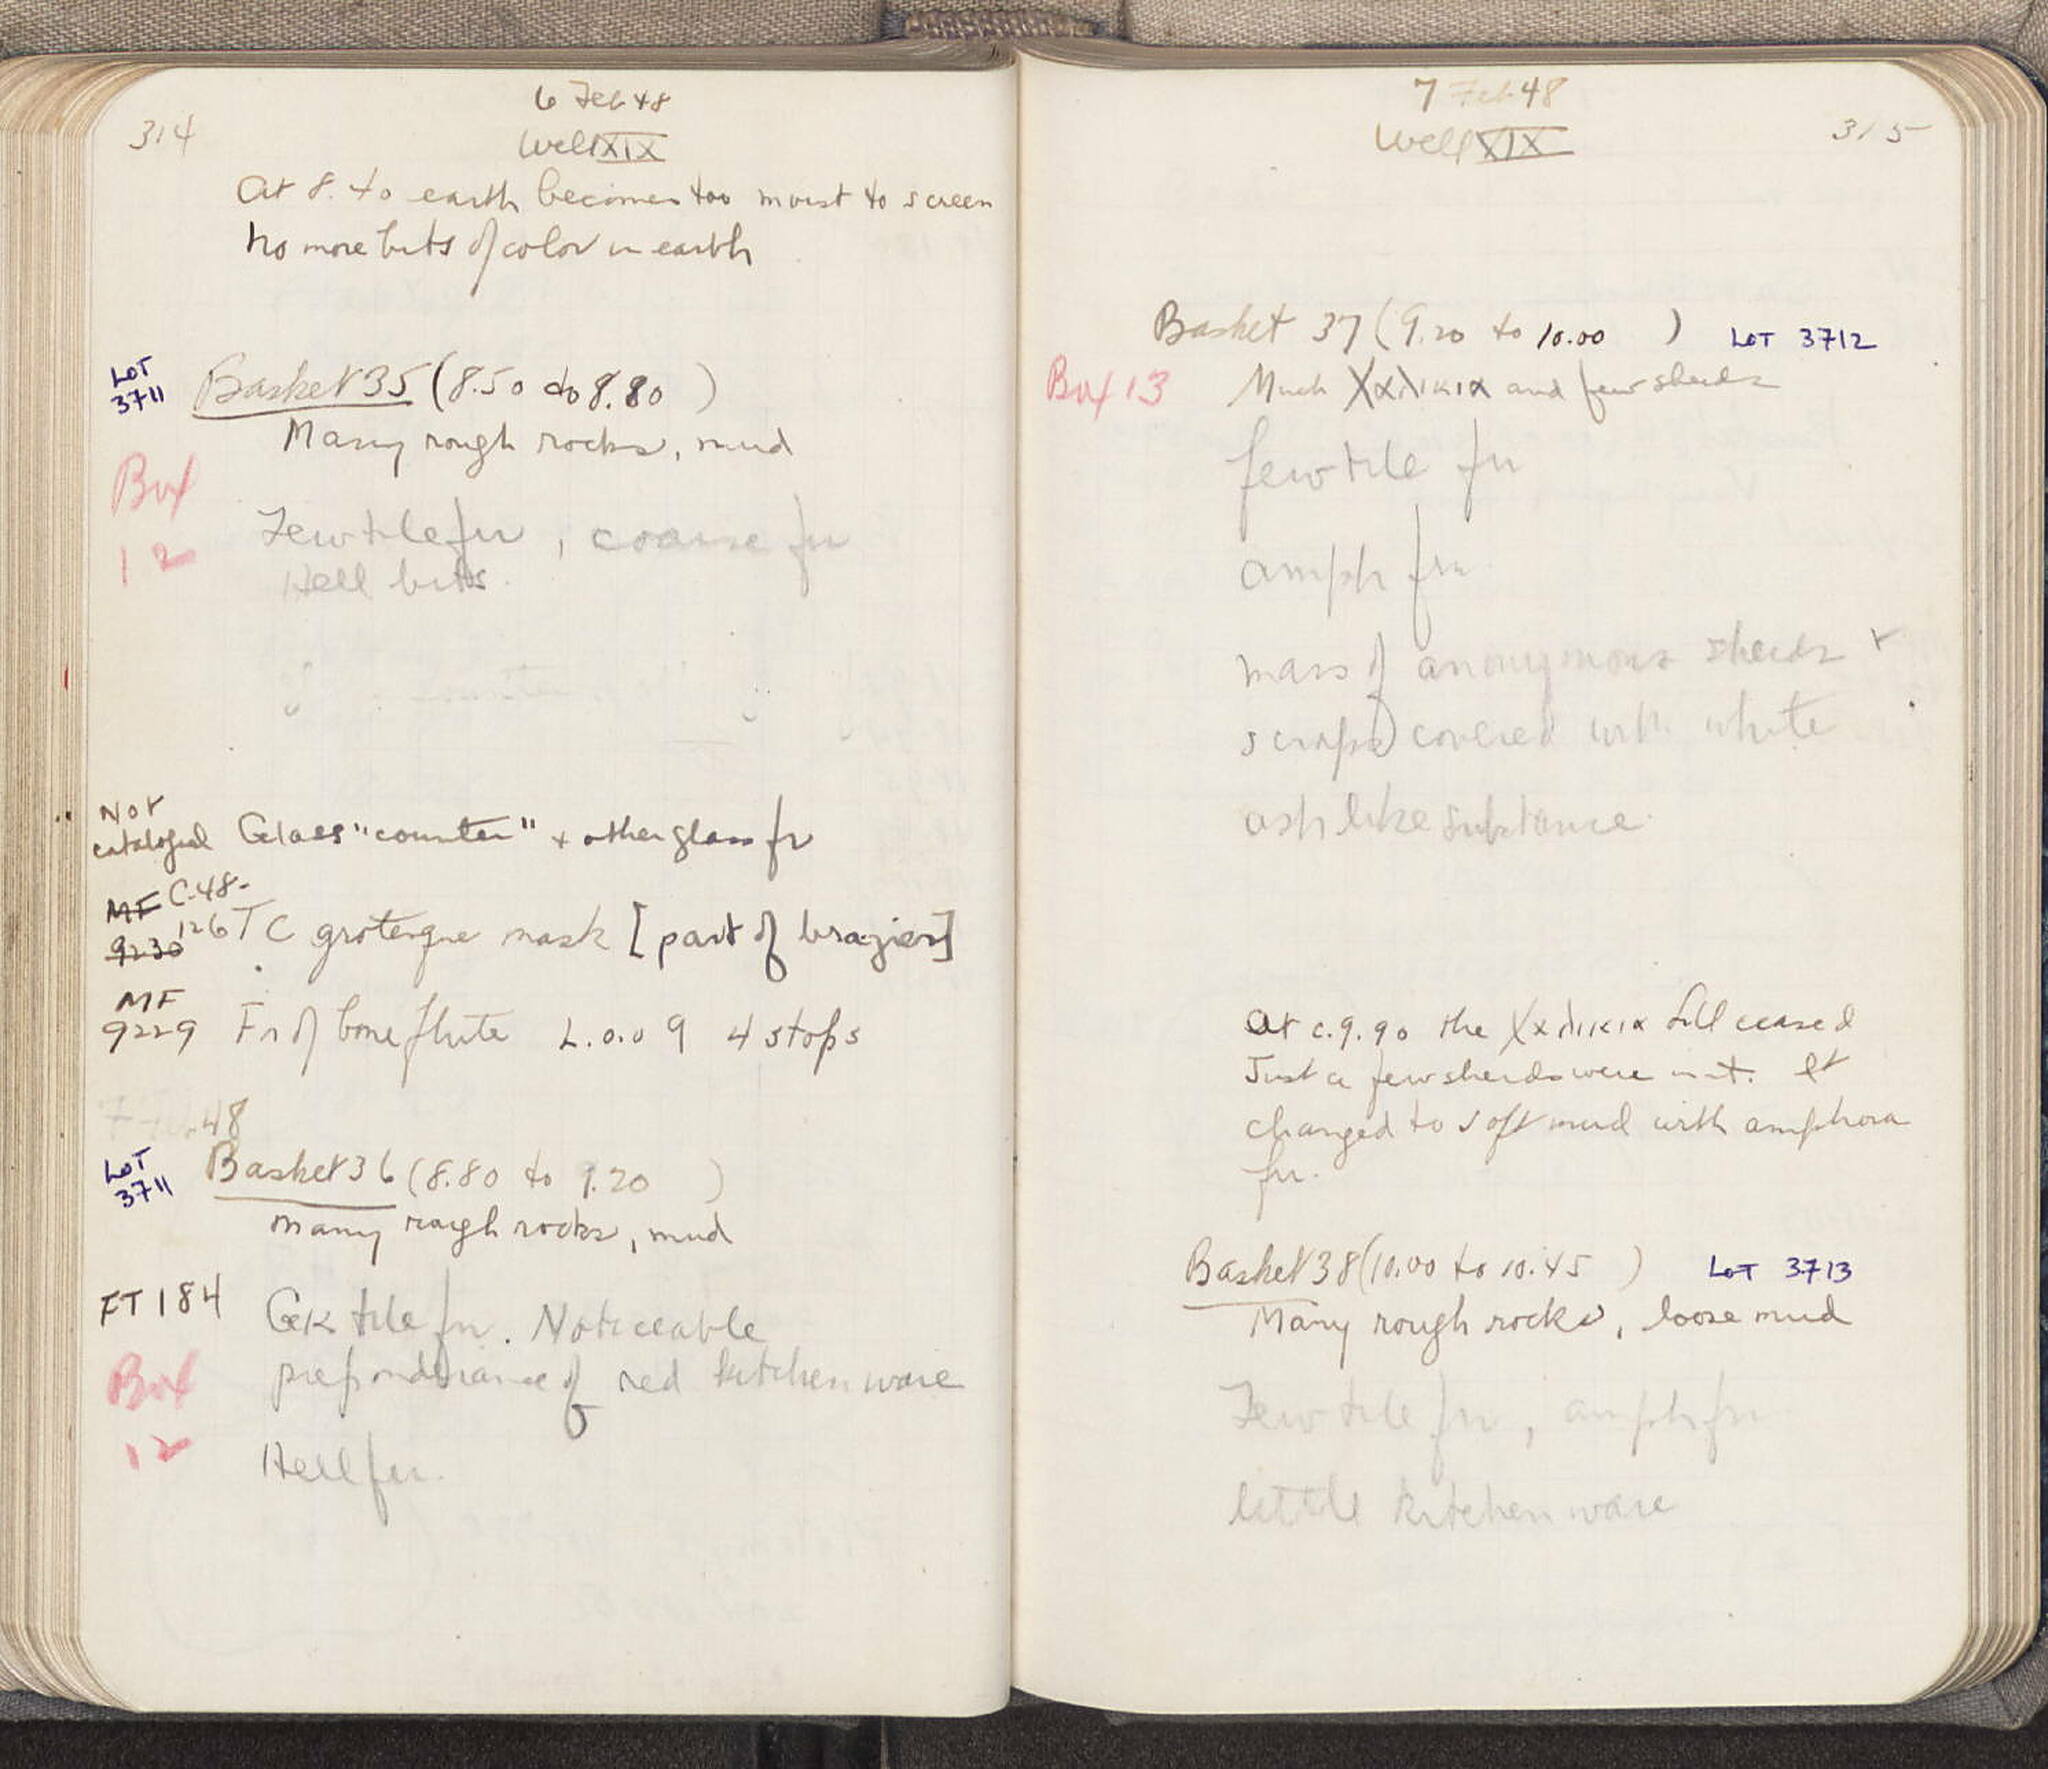 314
6 Feb 48
Well XIX
At 8.40 earth becomes too moist to screen
No more bits of color in earth
LOT
3711
Basket 35 (8.50 to 8.80 )
Many rough rocks, mud
Box
12
Few tile fr , coarse fr
Hell bits.
Not
cataloged
Glass "counter" + other glass fr
MF C-48-
9230 126 TC grotesque mask [part of brazier]
MF
9229
Fr of bone flute L.o.o 9 4 stops
7 Feb 48
LOT
3711
Basket 36 (8.80 to 9.20 )
Many rough rocks, mud
FT 184
Gk tile fr. Noticeable
preponderance of red kitchen ware
Box
12
Hell fr.
7 Feb 48
Well XIX
315
Basket 37 (9.20 to 10.00 ) LOT 3712
Box 13
Much Χαλικια and few sherds
few tile fr
amph fr.
mass of anonymous sherds +
scraps covered with white
ash like substance.
At c. 9.90 the Χαλικια fill ceased
Just a few sherds were in it. It
changed to soft mud with amphora
fr.
Basket 38 (10.00 to 10.45 ) LOT 3713
Many rough rocks, loose mud
Few tile fr, amph fr
little kitchen ware